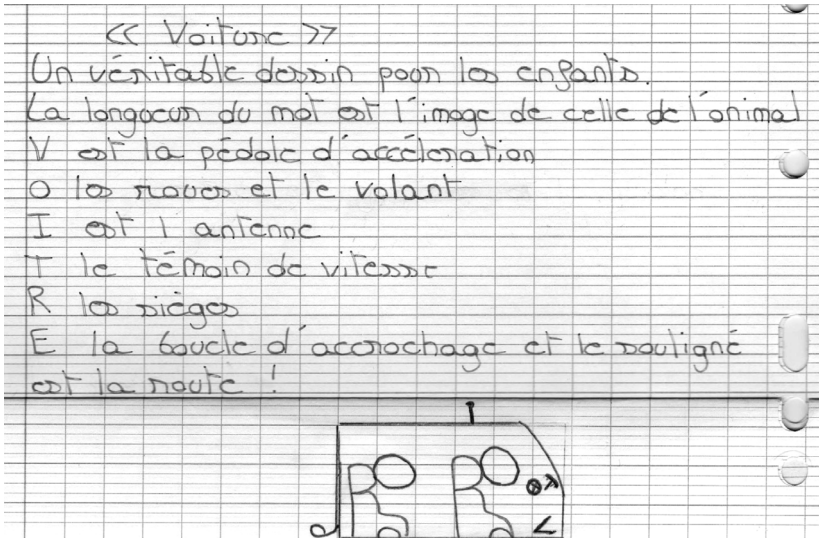 << Voiture >>
Un véritable dessin pour les enfants.
La longueur du mot est l'image de celle de l'animal
V est la pédale d'accélération
O les roues et le volant
I est l antenne
T le témoin de vitesse
R les sièges
E la boucle d'accrochage et le souligné
est la route !